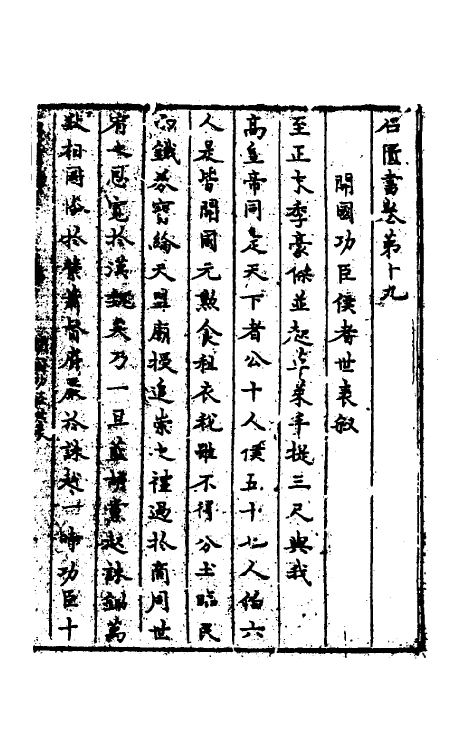 石匱書卷第十九
開國功臣侯者世表敘
至正末季豪傑並起草萊手提三尺與我
高皇帝同定天下者公十人侯五十七人伯六
人是皆開國元勲食租衣稅雖不得分土臨民
而鐵券寶綸天語廟授追崇之禮過於商周世
宥之恩寬於漢魏矣乃一旦藍胡黨起誅鋤萬
獄相國慘於督府嚴於誅越一時功臣十